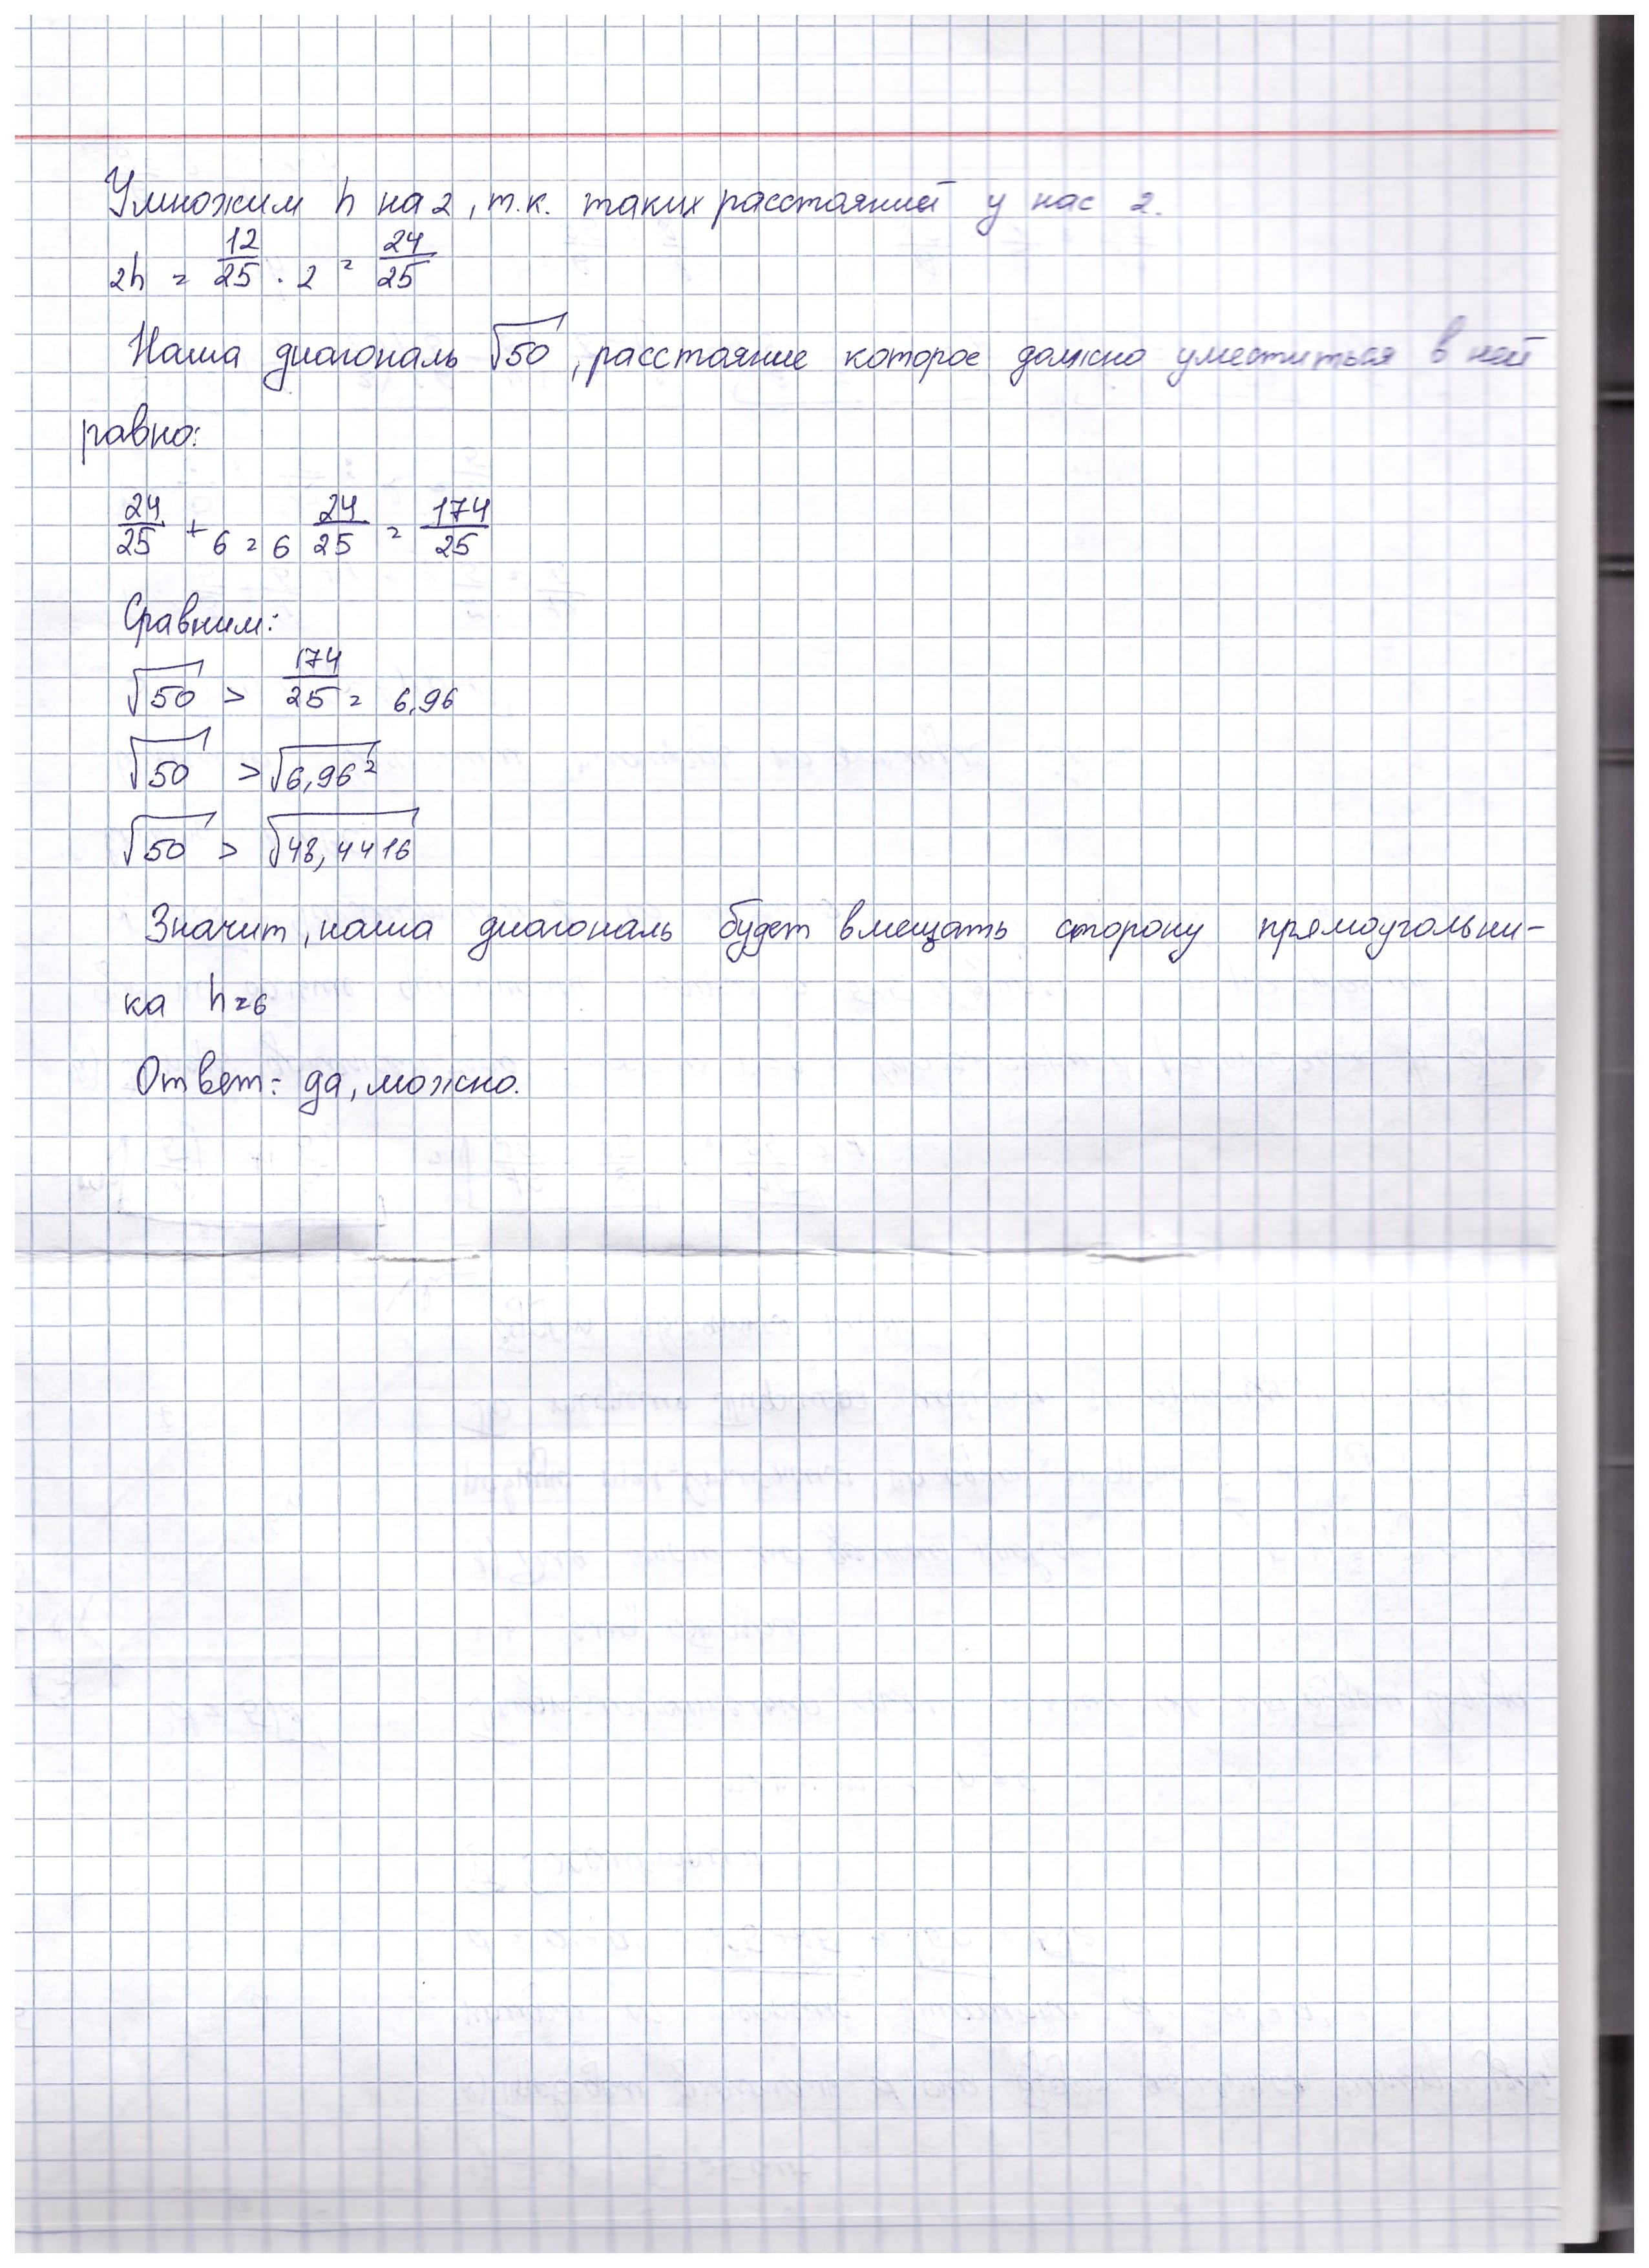 Умножим h на 2, т.к. таких расстояний у нас 2.
2h = 12/25 · 2 = 24/25
Наша диагональ √50, расстояние которое должно уместиться в ней
равно:
24/25 + 6 = 6 24/25 = 174/25
Сравним:
√50 > 174/25 = 6,96
√50 > √6,96²
√50 > √48,4416
Значит, наша диагональ будет вмещать сторону прямоугольни-
ка h=6
Ответ: да, можно.